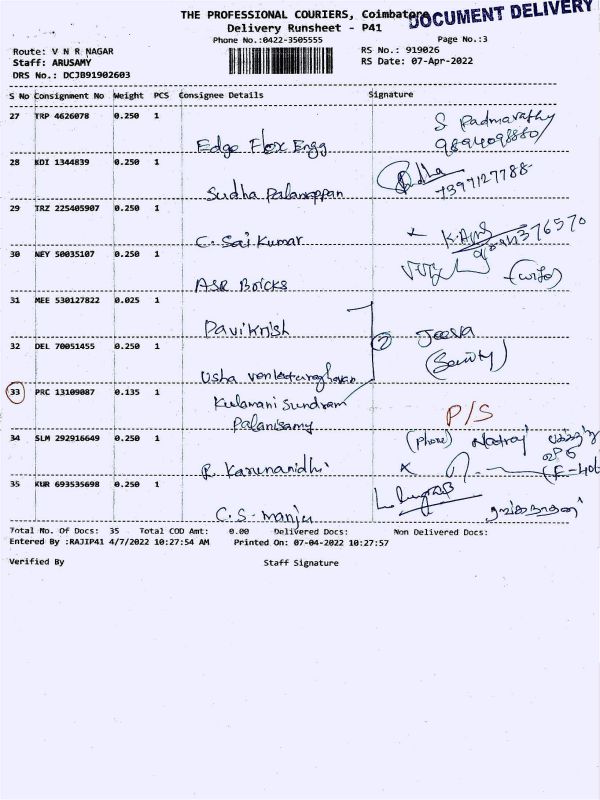 THE PROFESSIONAL COURIERS, Coimbatore
DOCUMENT DELIVERY
Delivery Runsheet - P41
Phone No.:0422-3505555
Page No.:3
Route: V N R NAGAR
RS No.: 919026
Staff: ARUSAMY
RS Date: 07-Apr-2022
DRS No.: DCJB91902603
S No Consignment No Weight PCS Consignee Details Signature
27 TRP 4626078 0.250 1
S Padmavathy
9894098880
Edge Flex Engg
28 KDI 1344839 0.250 1
Sudha
7397127788
Sudha Palanappan
29 TRZ 225405907 0.250 1
C. Sai Kumar
30 NEY 50035107 0.250 1
(wife)
ASR Bricks
31 MEE 530127822 0.025 1
Pavikrish
32 DEL 70051455 0.250 1
2 Jeeva
(Security)
Usha Venkaturaghavan
33 PRC 13109087 0.135 1
Kulamani Sundram
Palanisamy
P/S
34 SLM 292916649 0.250 1
(Phone) Natraj
R. Karunanidhi
35 KUR 693535698 0.250 1
C.S. Manju
Total No. Of Docs: 35 Total COD Amt: 0.00 Delivered Docs: Non Delivered Docs:
Entered By :RAJIP41 4/7/2022 10:27:54 AM Printed On: 07-04-2022 10:27:57
Verified By Staff Signature